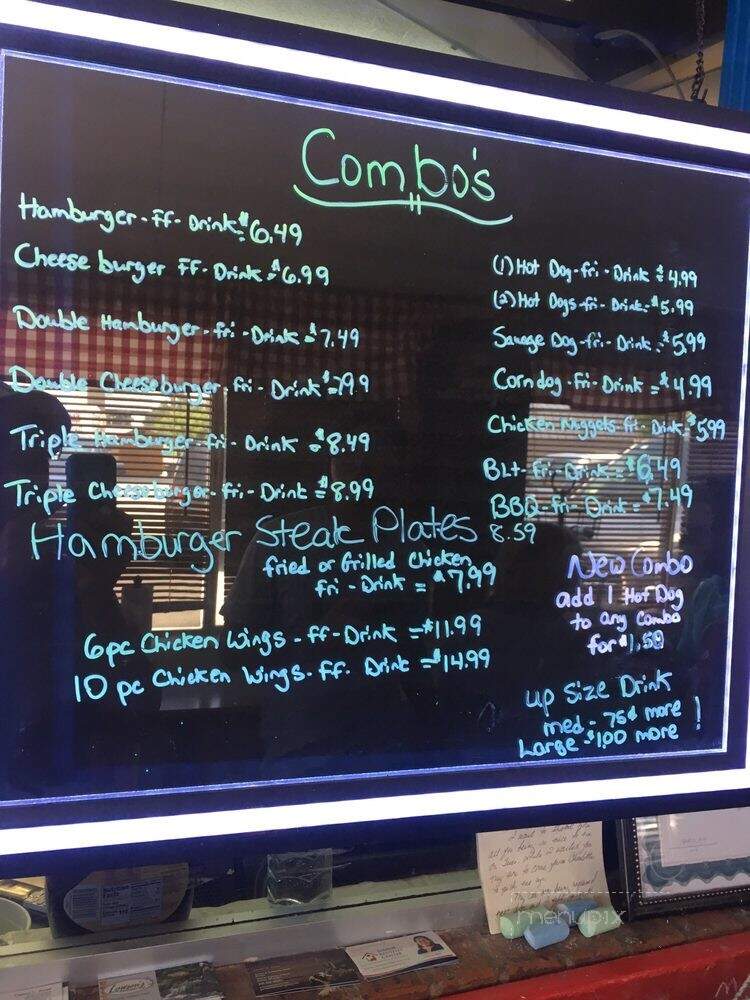 Combo's
Hamburger - ff - Drink = $6.49
Cheese burger ff - Drink = $6.99
Double Hamburger - fri - Drink = $7.49
Double Cheeseburger - fri - Drink $79.9
Triple Hamburger - fri - Drink = $8.49
Triple Cheeseburger - fri - Drink = $8.99
(1) Hot Dog - fri - Drink = $4.99
(2) Hot Dogs - fri - Drink = $5.99
Sausage Dog - fri - Drink = $5.99
Corndog - fri - Drink = $4.99
Chicken Nuggets - fr - Drink = $5.99
BLt - fri - Drink = $6.49
BBQ - fri - Drink = $7.49
Hamburger Steak Plates 8.59
fried or Grilled Chicken
fri - Drink = $7.99
6pc Chicken Wings - ff - Drink = $11.99
10 pc Chicken Wings - ff. Drink = $14.99
New Combo
add 1 Hot Dog
to any combo
for $1.50
up Size Drink
med - 75¢ more
Large - $1.00 more !
menupix